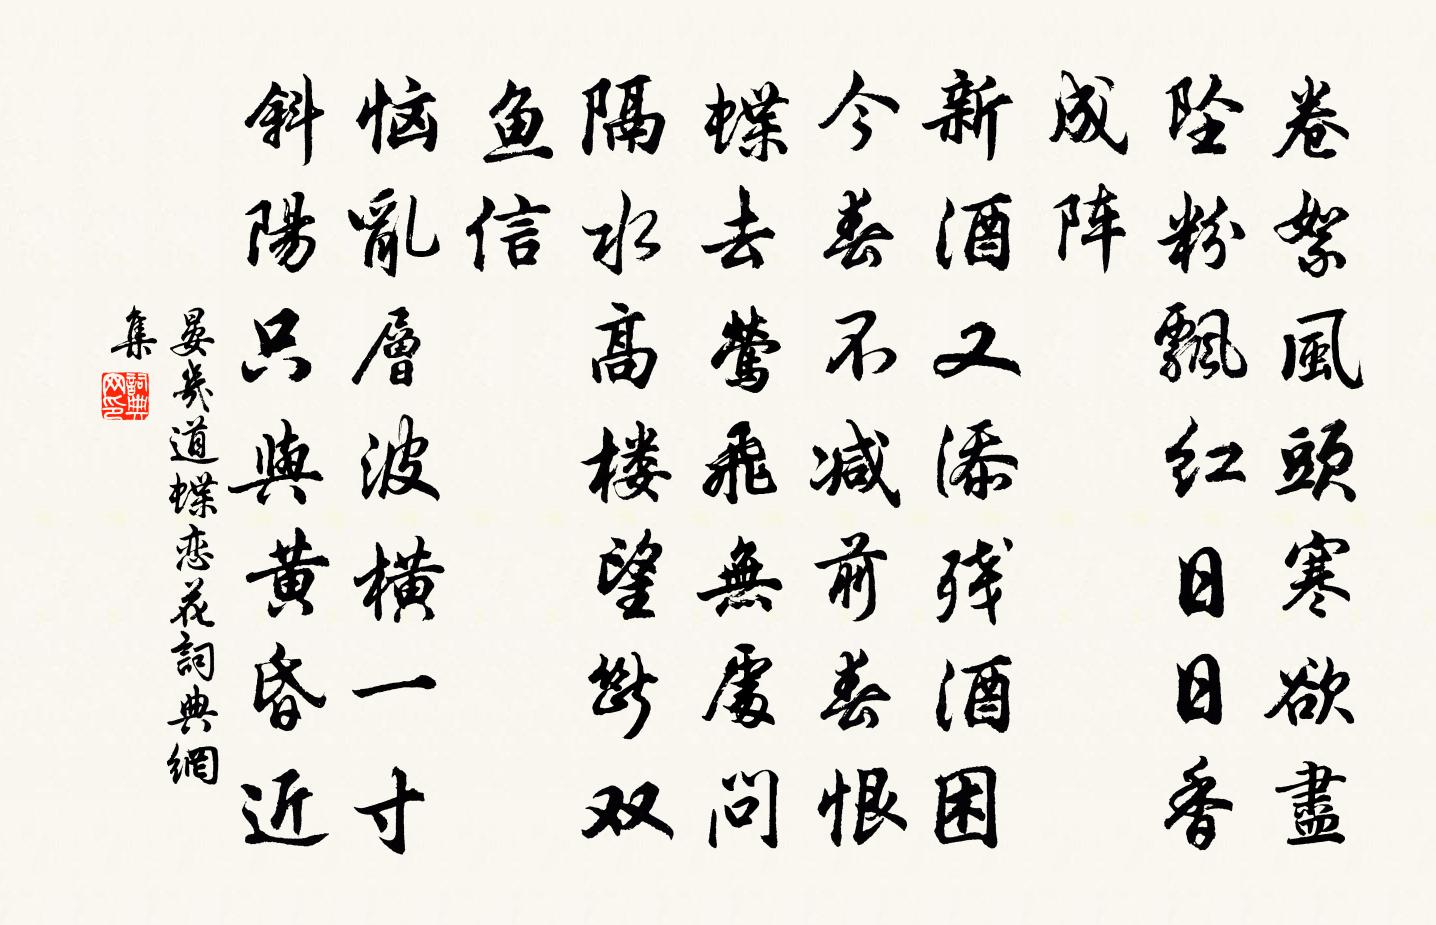 卷絮風頭寒欲盡
墜粉飄红日日香
成阵
新酒又添残酒困
今春不减前春恨
蝶去鶯飛無處問
隔水高楼望斷双
鱼信
恼亂層波横一寸
斜陽只與黄昏近
晏幾道蝶恋花詞典網
集
詞典网印